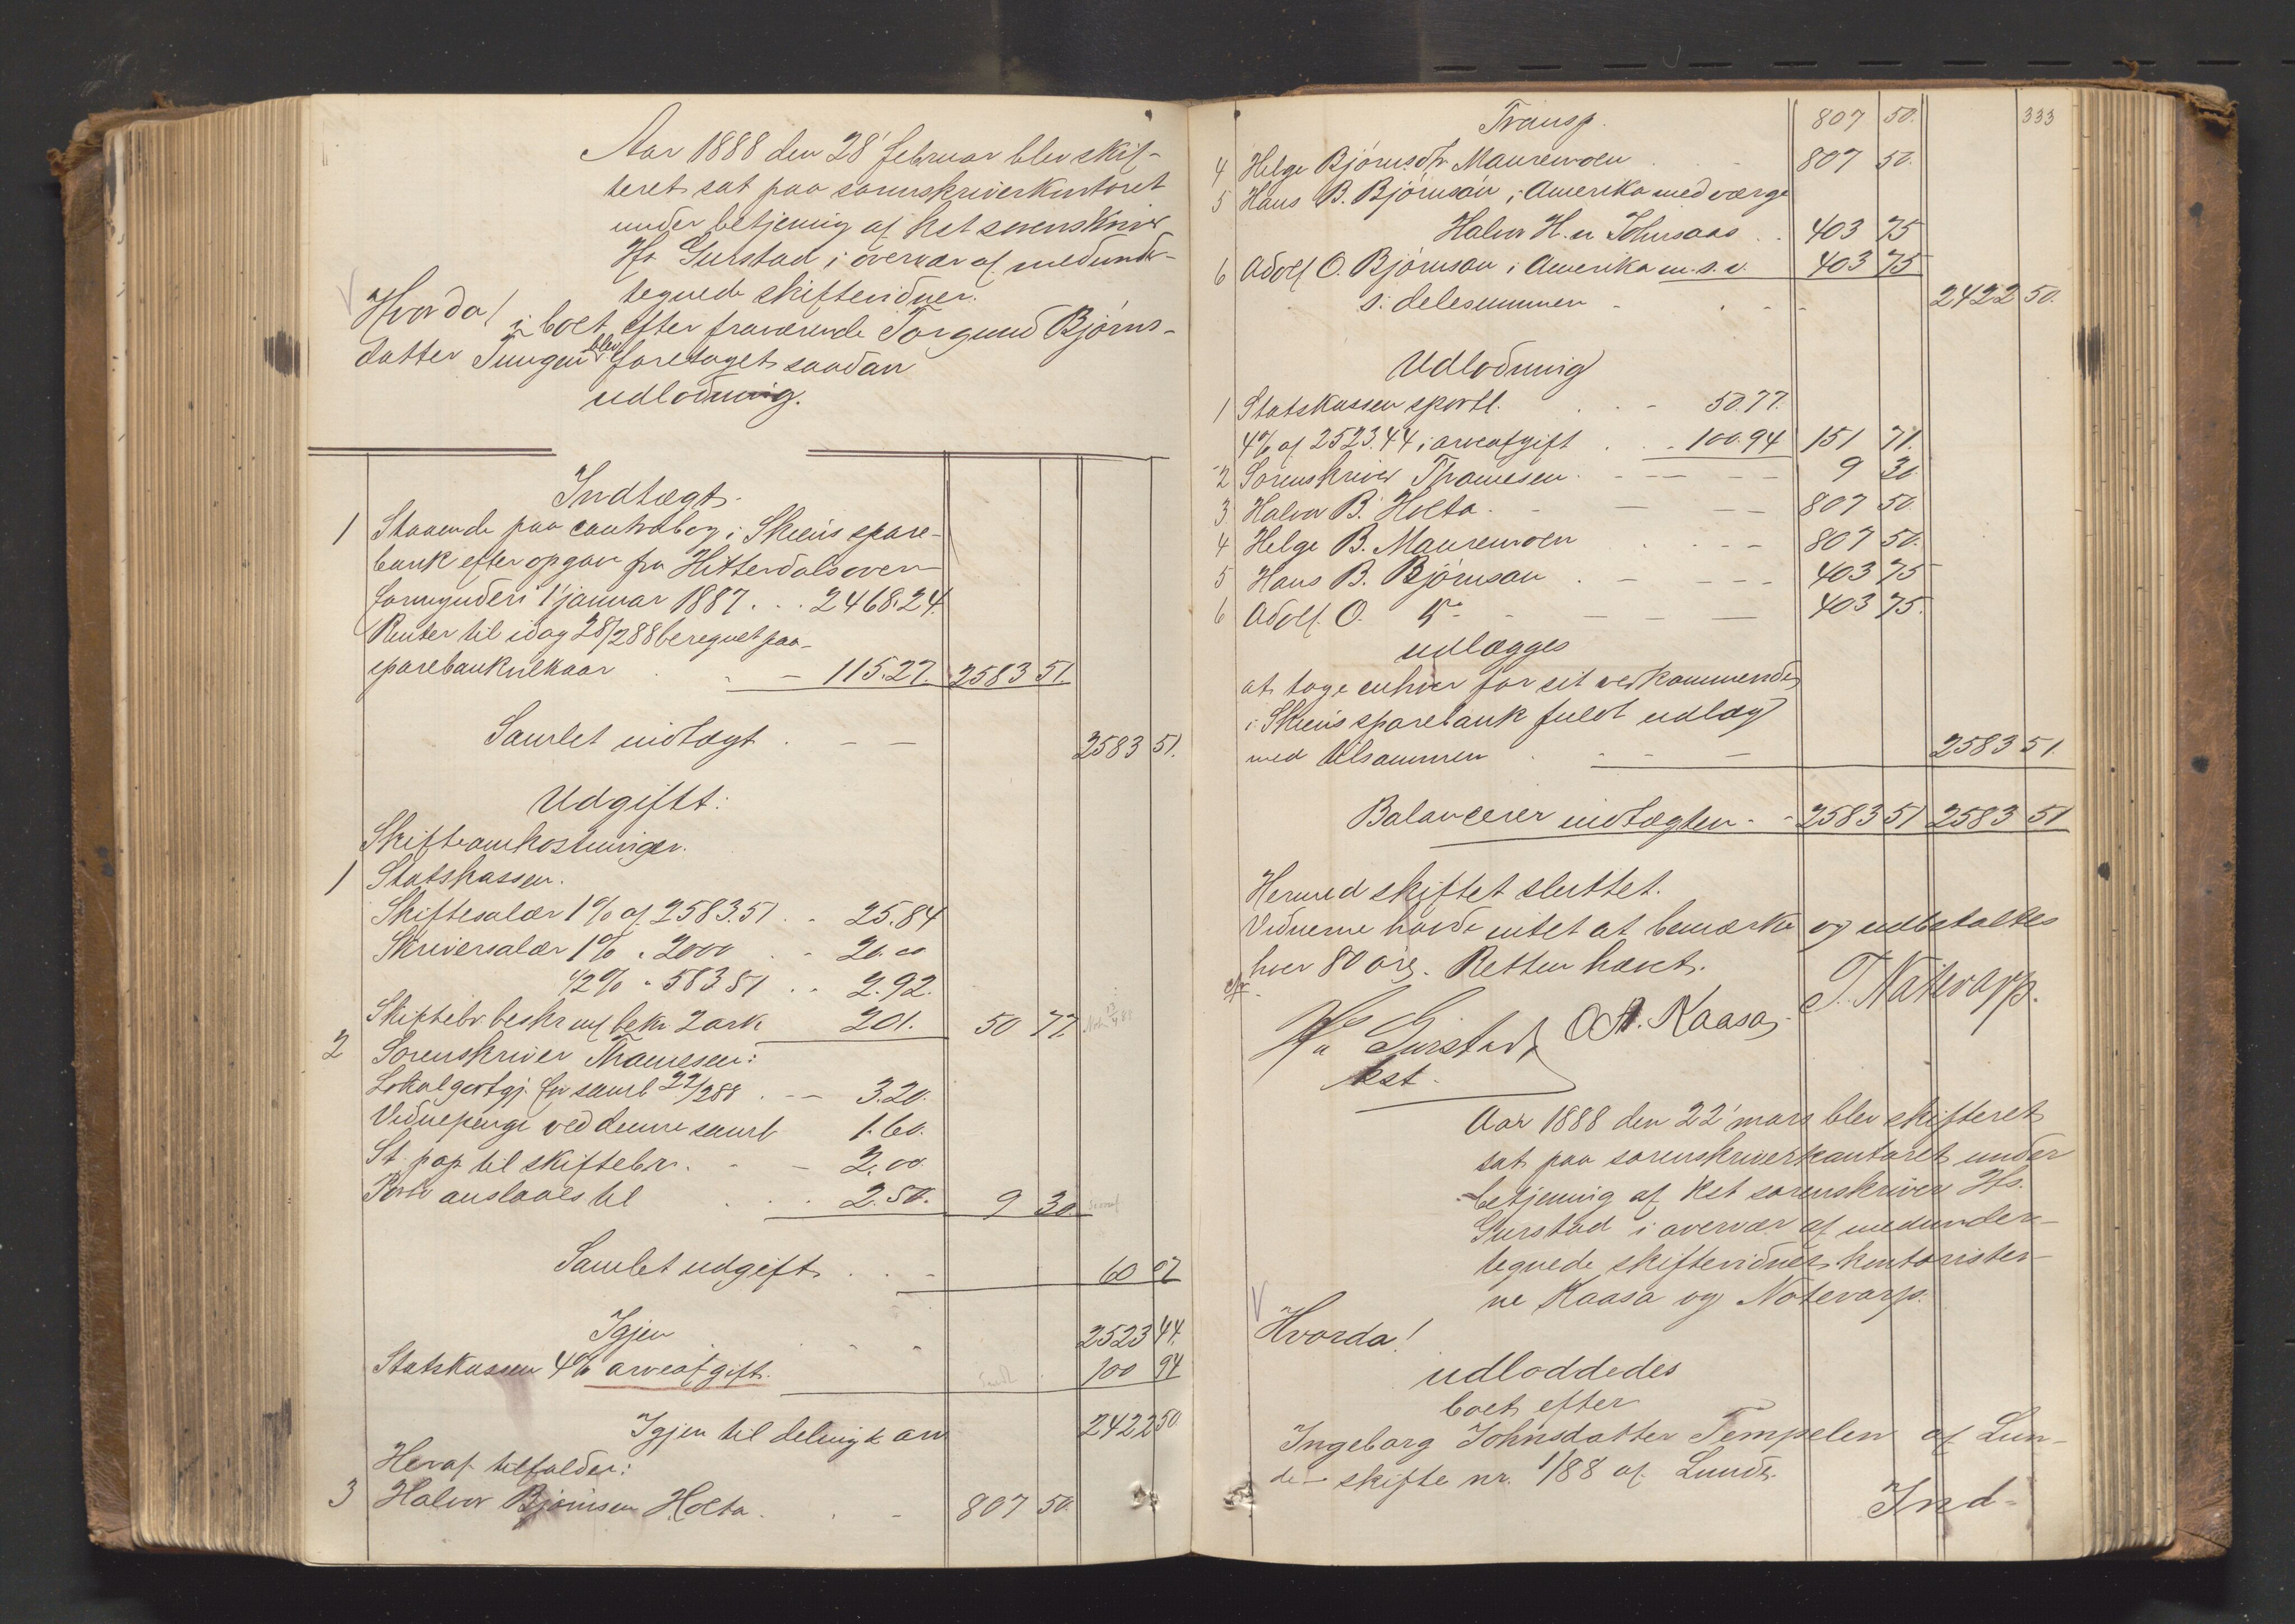 Aar 1888 den 28' februar blev skif-
teret sat paa sorenskriverkontoret
under betjening af kst sorenskriver
Hs. Gurstad i overvær af medunder-
tegnede skiftevidner.
Hvorda!
i boet efter fraværende Torgund Bjørns-
datter Tungen blev foretaget saadan
udlodning.
Indtægt.
1 Staaende paa contrabog i Skiens spare-
bank efter opgav fra Hitterdals over-
formynderi 1' januar 1887 . . . 2468.24.
Renter til idag 28/2 88 beregnet paa
sparebankvilkaar - - 115.27. 2583 51.
Samlet indtægt . - - 2583 51.
Udgift:
Skifteomkostninger.
1 Statskassen.
Skiftesalær 1% af 2583.51 . . 25.84
Skriversalær 1% " 2000 . - 20.00
1/2% " 583 51 . . 2.92.
Skiftebr beskr uf bekr 2 ark 201. 50 77.
2 Sorenskriver Thomesen:
Lokalgodtgj. for saml 22/2 88 . - - 3.20.
Vidnepenge ved denne saml 1.60.
St. pap til skiftebr. - - 2.00
Porto anslaaes til . . 2.50. 9 30.
Samlet udgift . . - 60 07
Igjen . - - 2523 44.
Statskassen 4% arveafgift. 100 94
Igjen til deling k arv 2422 50
Heraf tilfalder:
3 Halvor Bjørnsen Holta . . - 807 50.
333
Transp. 807 50.
4 Helge Bjørnsdtr Mauremoen . - 807 50.
5 Hans B. Bjørnson i Amerika med værge
Halvor H. Johnsaas . . 403 75
6 Adolf O. Bjørnson i Amerika m. s. v. 403 75
s: delesummen - . - - 2422 50.
Udlodning
1 Statskassen sportl. . . - 50.77.
4% af 2523.44 i arveafgift . . - 100.94 151 71.
2 Sorenskriver Thomesen . - - - - - 9 30
3 Halvor B. Holta . - - - - 807 50
4 Helge B. Mauremoen . . - - 807 50.
5 Hans B. Bjørnson . - - - - 403 75
6 Adolf. O. do - - - - 403 75.
udlægges
at tage enhver for sit vedkommende
i Skiens sparebank fuldt udlæg
med tilsammen . - - - 2583 51.
Balancerer indtægten - - 2583 51 2583 51
Hermed skiftet sluttet.
Vidnerne havde intet at bemærke og udbetaltes
hver 80 øre. Retten hævet.
Hs Gurstad O. A. Kaasa. T. Nåtevarp.
kst.
Aar 1888 den 22' mars blev skifteret
sat paa sorenskriverkontoret under
betjening af kst sorenskriver Hs.
Gurstad i overvær af medunder-
tegnede skiftevidner kontorister-
ne Kaasa og Nåtevarp.
Hvorda!
udloddedes
boet efter
Ingeborg Johnsdatter Tempelen af Lun-
de - skifte nr. 1/88 af Lunde.
Ind-